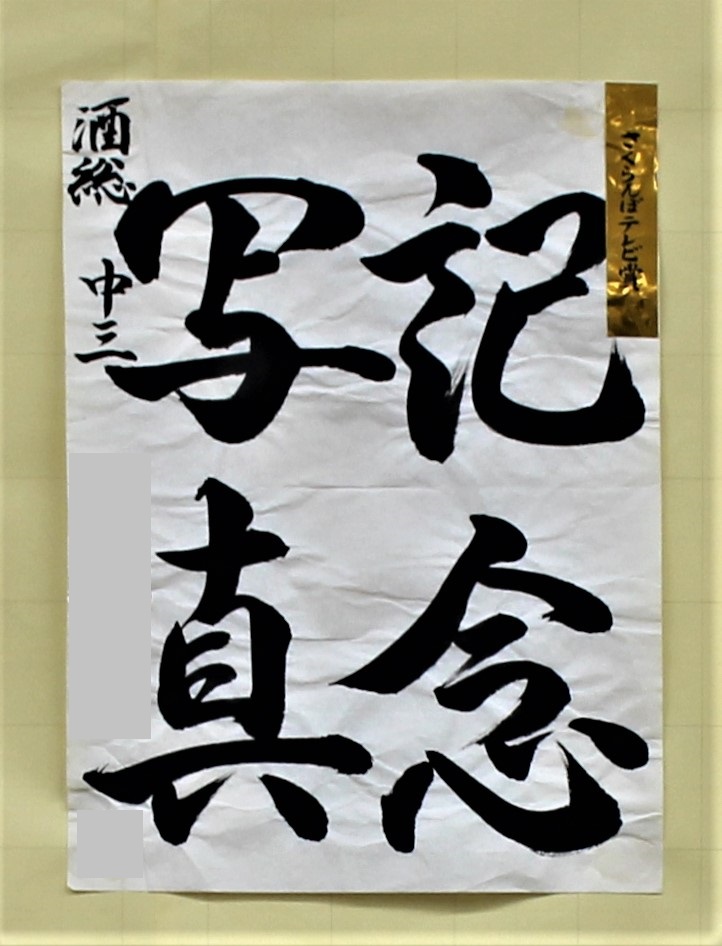 さくらんぼテレビ賞
記念
写真
酒総 中三